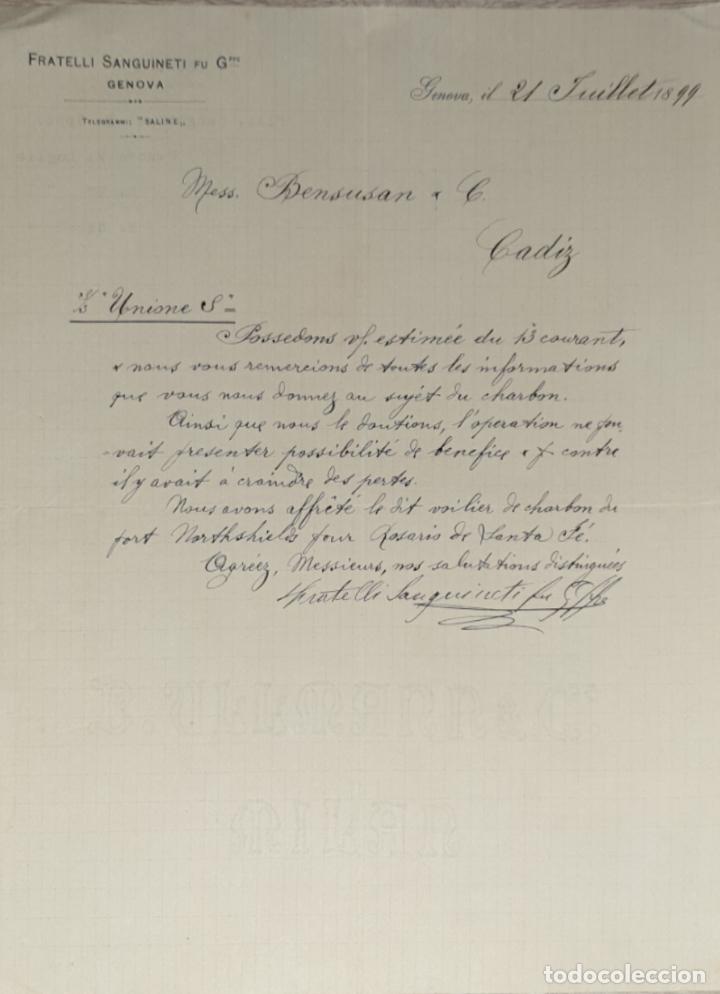 FRATELLI SANGUINETI FU G.PPE
GENOVA
TELEGRAMMI: "SALINE"
Genova, il 21 Juillet 1899
Mess. Bensusan & C.
Cadiz
"Unione S"
Possedons v/ estimée du 13 courant,
& nous vous remercions de toutes les informations
que vous nous donnez au sujet du charbon.
Ainsi que nous le doutions, l'operation ne pou-
vait presenter possibilité de benefice & p contre
il y avait à craindre des pertes.
Nous avons affrêté le dit voilier de charbon du
port Northshields pour Rosario de Santa Fé.
Agréez, Messieurs, nos salutations distinguées
Fratelli Sanguineti fu G.ppe
todocoleccion.net